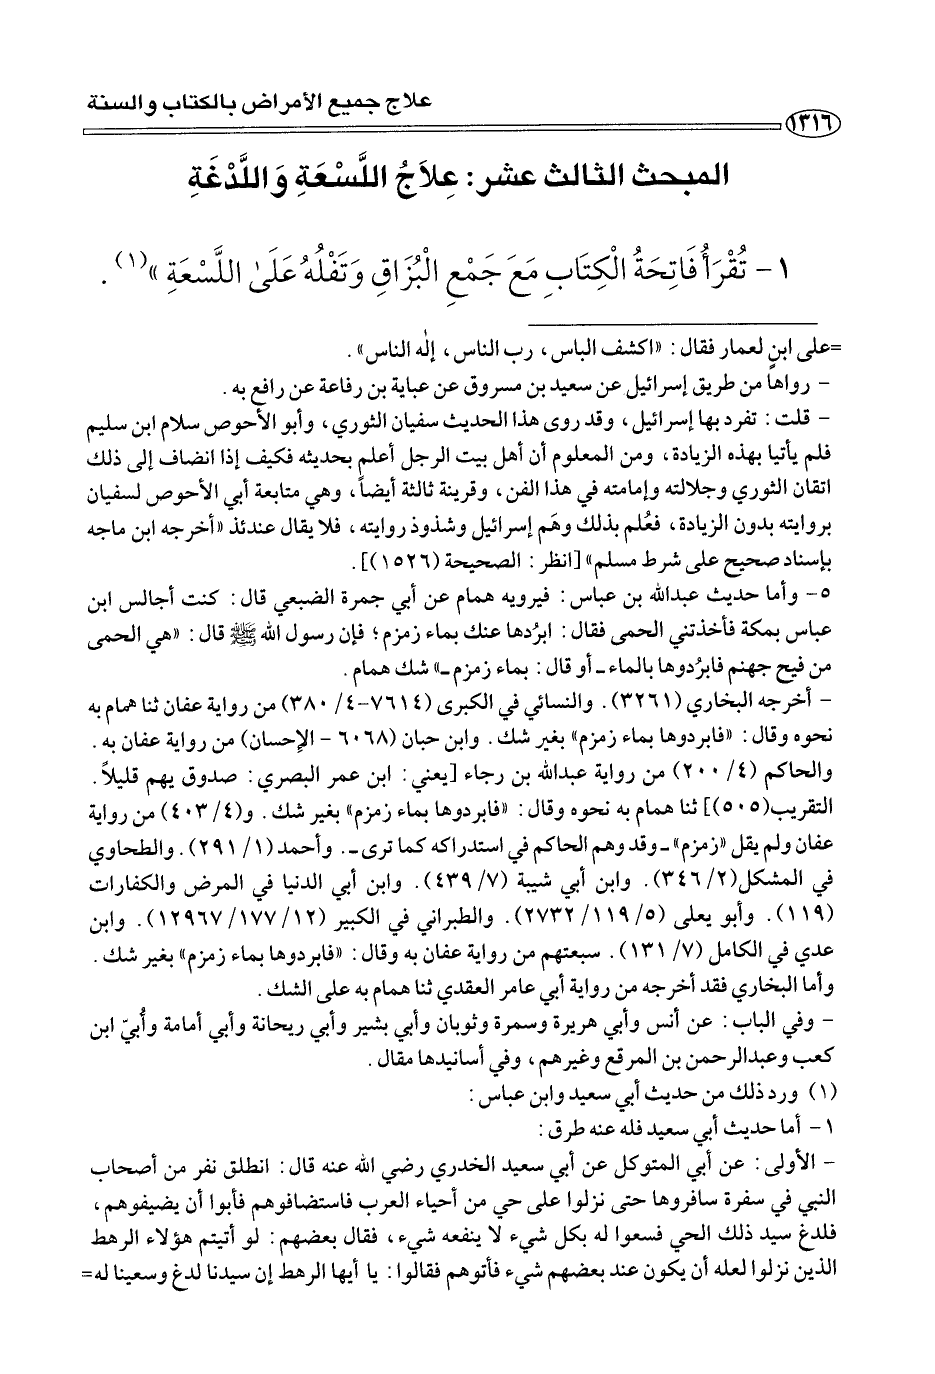 علاج جميع الأمراض بالكتاب والسنة
١٣١٦
المبحث الثالث عشر: عِلاَجُ اللَّسْعَةِ وَاللَّدْغَةِ
١- تُقْرَأُ فَاتِحَةُ الْكِتَابِ مَعَ جَمْعِ الْبُزَاقِ وَتَفْلُهُ عَلَىٰ اللَّسْعَةِ »(١).
=على ابنٍ لعمار فقال: «اكشف الباس، رب الناس، إلٰه الناس».
- رواها من طريق إسرائيل عن سعيد بن مسروق عن عباية بن رفاعة عن رافع به.
- قلت: تفرد بها إسرائيل، وقد روى هذا الحديث سفيان الثوري، وأبو الأحوص سلام ابن سليم
فلم يأتيا بهذه الزيادة، ومن المعلوم أن أهل بيت الرجل أعلم بحديثه فكيف إذا انضاف إلى ذلك
اتقان الثوري وجلالته وإمامته في هذا الفن، وقرينة ثالثة أيضاً، وهي متابعة أبي الأحوص لسفيان
بروايته بدون الزيادة، فعُلم بذلك وهَم إسرائيل وشذوذ روايته، فلا يقال عندئذ «أخرجه ابن ماجه
بإسناد صحيح على شرط مسلم» [انظر: الصحيحة (١٥٢٦)].
٥- وأما حديث عبدالله بن عباس: فيرويه همام عن أبي جمرة الضبعي قال: كنت أجالس ابن
عباس بمكة فأخذتني الحمى فقال: ابرُدها عنك بماء زمزم؛ فإن رسول الله ﷺ قال: «هي الحمى
من فيح جهنم فابرُدوها بالماء ـ أو قال: بماء زمزم ـ» شك همام.
- أخرجه البخاري (٣٢٦١). والنسائي في الكبرى (٧٦١٤-٤/ ٣٨٠) من رواية عفان ثنا همام به
نحوه وقال: «فابردوها بماء زمزم» بغير شك. وابن حبان (٦٠٦٨ - الإحسان) من رواية عفان به.
والحاكم (٤/ ٢٠٠) من رواية عبدالله بن رجاء [يعني: ابن عمر البصري: صدوق يهم قليلاً.
التقريب(٥٠٥)] ثنا همام به نحوه وقال: «فابردوها بماء زمزم» بغير شك. و(٤/ ٤٠٣) من رواية
عفان ولم يقل «زمزم» ـ وقد وهم الحاكم في استدراكه كما ترى ـ. وأحمد (١/ ٢٩١). والطحاوي
في المشكل(٢/ ٣٤٦). وابن أبي شيبة (٧/ ٤٣٩). وابن أبي الدنيا في المرض والكفارات
(١١٩). وأبو يعلى (٥/ ١١٩/ ٢٧٣٢). والطبراني في الكبير (١٢/ ١٧٧/ ١٢٩٦٧). وابن
عدي في الكامل (٧/ ١٣١). سبعتهم من رواية عفان به وقال: «فابردوها بماء زمزم» بغير شك.
وأما البخاري فقد أخرجه من رواية أبي عامر العقدي ثنا همام به على الشك.
- وفي الباب: عن أنس وأبي هريرة وسمرة وثوبان وأبي بشير وأبي ريحانة وأبي أمامة وأُبيّ ابن
كعب وعبدالرحمن بن المرقع وغيرهم، وفي أسانيدها مقال.
(١) ورد ذلك من حديث أبي سعيد وابن عباس:
١- أما حديث أبي سعيد فله عنه طرق:
- الأولى: عن أبي المتوكل عن أبي سعيد الخدري رضي الله عنه قال: انطلق نفر من أصحاب
النبي في سفرة سافروها حتى نزلوا على حي من أحياء العرب فاستضافوهم فأبوا أن يضيفوهم،
فلدغ سيد ذلك الحي فسعوا له بكل شيء لا ينفعه شيء، فقال بعضهم: لو أتيتم هؤلاء الرهط
الذين نزلوا لعله أن يكون عند بعضهم شيء فأتوهم فقالوا: يا أيها الرهط إن سيدنا لدغ وسعينا له=